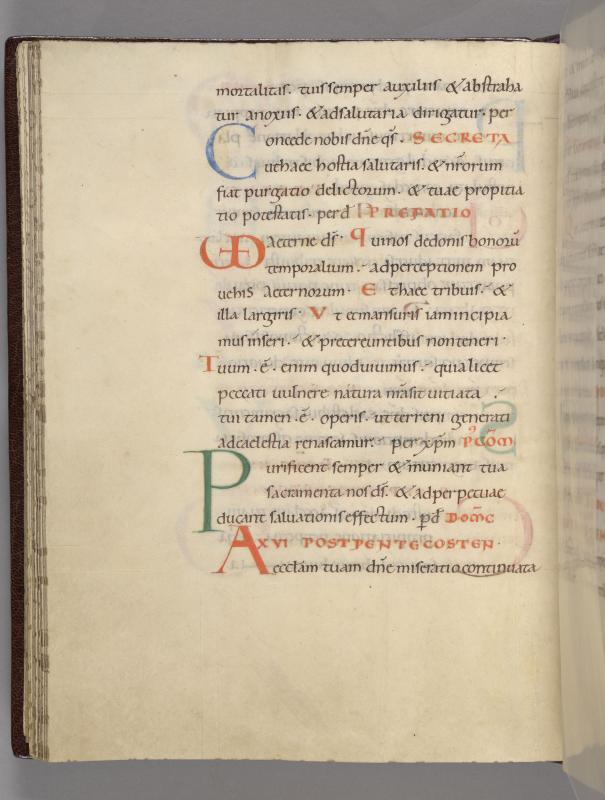 mortalitis. tuis semper auxiliis & abstraha
tur anoxiis. & adsalutaria dirigatur. per
Concede nobis dñe qs̄. SECRETA
vt haec hostia salutaris. & nr̄orum
fiat purgatio delictorum. & tuae propitia
tio potestatis. per d̄ PREFATIO
aeterne ds̄. Qui nos de donis bonorū
temporalium. ad perceptionem pro
vehis aeternorum. Et haec tribuis. &
illa largiris. Vt et mansuris iam incipia
mus inseri. & pretereuntibus non teneri.
Tuum. ē. enim quod uiuimus. quia licet
peccati vulnere natura nr̄a sit vitiata.
tui tamen. ē. operis. ut terreni generati
ad caelestia renascamur. per xp̄m PCOM̄
Purificent semper & muniant tua
sacramenta nos ds̄. & ad perpetuae
ducant saluationis effectum. p̄d̄ DOM̄C
AXVI POST PENTECOSTEN.
Aecclām tuam dñe miseratio continuata